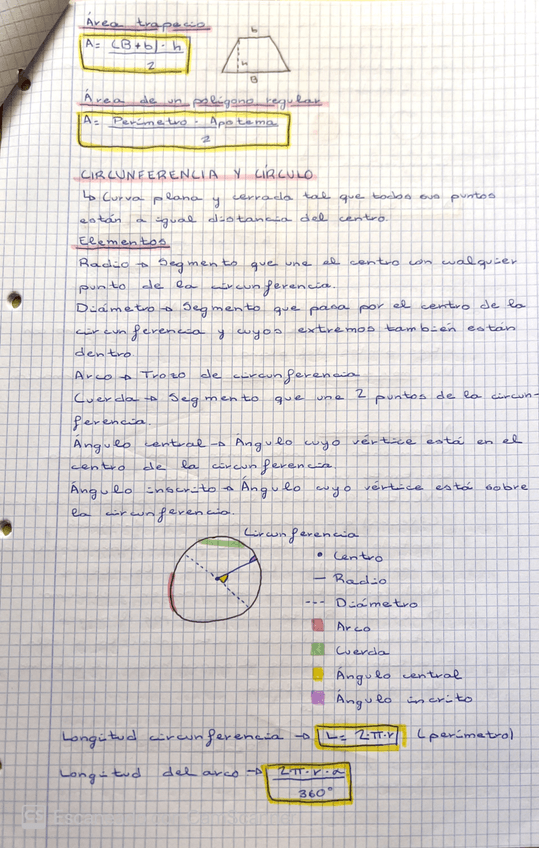 Área trapecio
A = (B+b) · h
2
b
h
B
Área de un polígono regular
A = Perímetro · Apotema
2
CIRCUNFERENCIA Y CÍRCULO
↳ Curva plana y cerrada tal que todos sus puntos
están a igual distancia del centro.
Elementos
Radio → Segmento que une el centro con cualquier
punto de la circunferencia.
Diámetro → Segmento que pasa por el centro de la
circunferencia y cuyos extremos también están
dentro
Arco → Trozo de circunferencia
Cuerda → Segmento que une 2 puntos de la circun-
ferencia.
Ángulo central → Ángulo cuyo vértice está en el
centro de la circunferencia.
Ángulo inscrito → Ángulo cuyo vértice está sobre
la circunferencia.
Circunferencia
• Centro
— Radio
--- Diámetro
Arco
Cuerda
Ángulo central
Ángulo incrito
Longitud circunferencia → L = 2·π·r (perímetro)
Longitud del arco → 2·π·r·α
360°
CS Escaneado con CamScanner